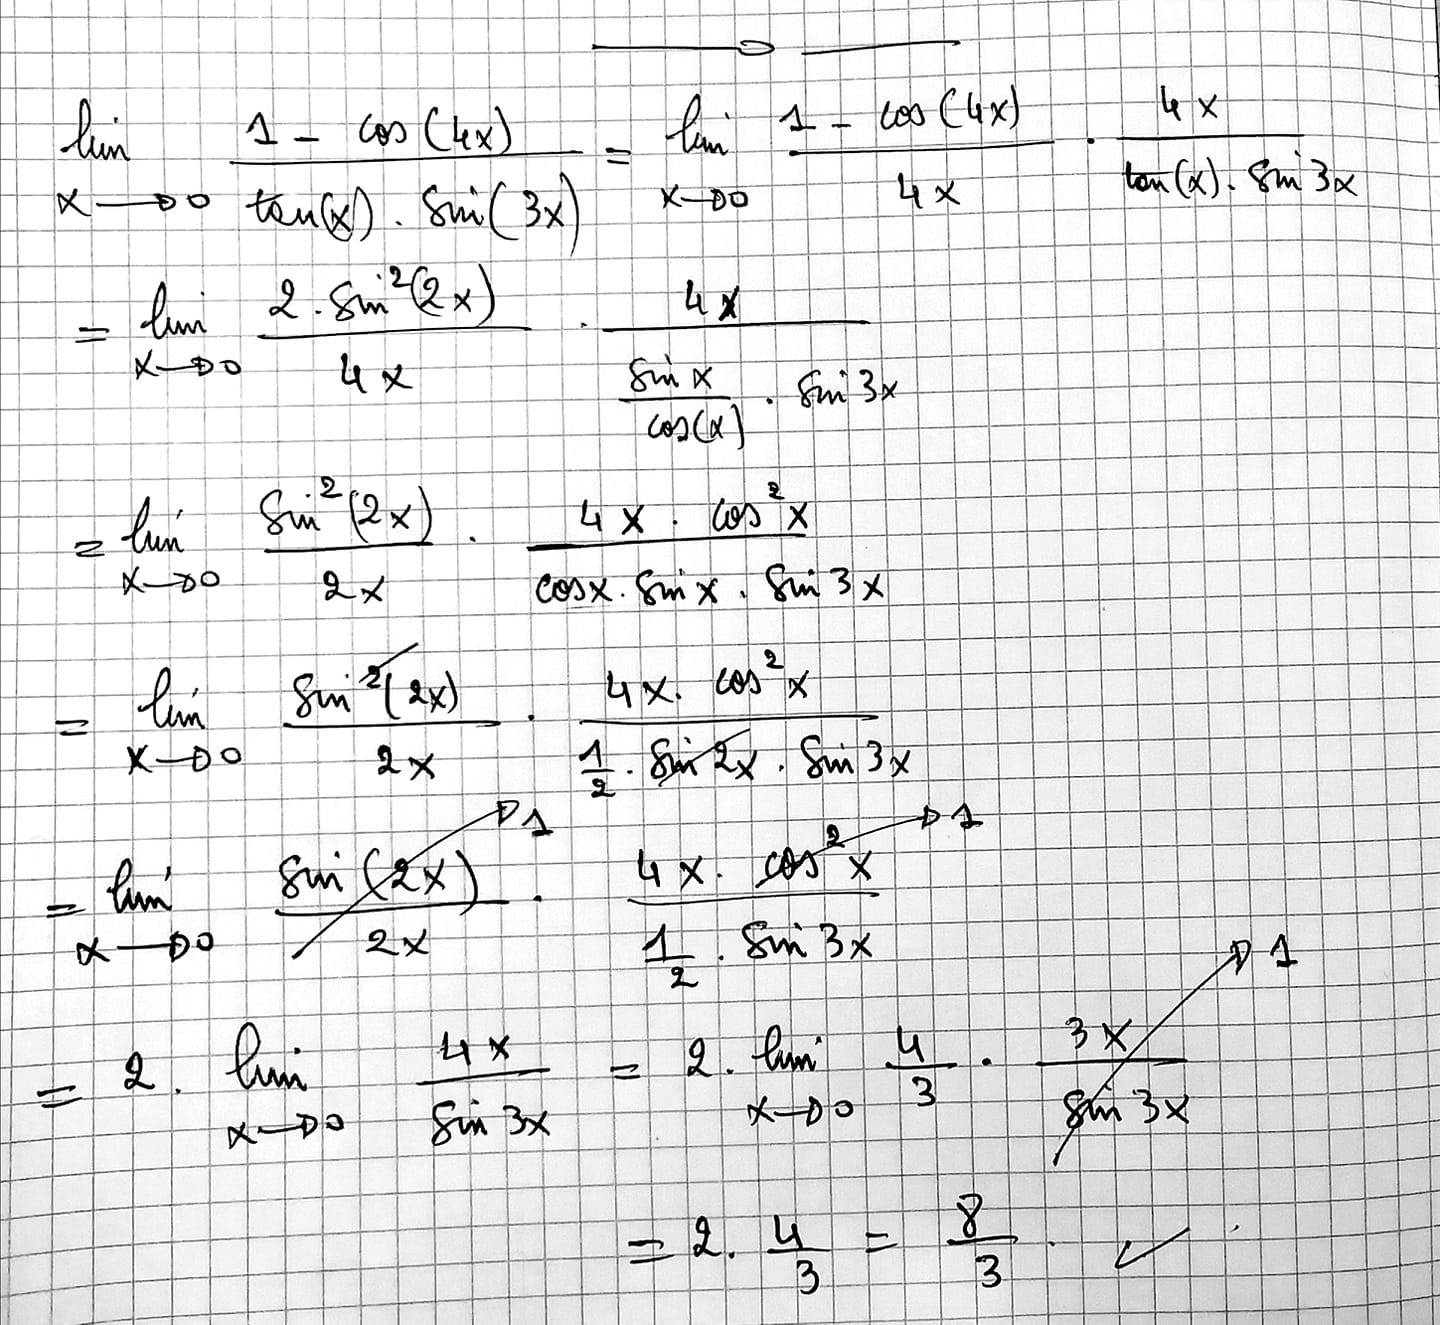 lim x→0 (1 - cos(4x)) / (tan(x) . sin(3x)) = lim x→0 (1 - cos(4x)) / (4x) . (4x) / (tan(x) . sin 3x)
= lim x→0 (2 . sin²(2x)) / (4x) . (4x) / ((sin x / cos(x)) . sin 3x)
= lim x→0 (sin²(2x)) / (2x) . (4x . cos²x) / (cosx . sin x . sin 3x)
= lim x→0 (sin²(2x)) / (2x) . (4x . cos²x) / (1/2 . sin 2x . sin 3x)
= lim x→0 (sin(2x)) / (2x) →1 . (4x . cos²x →1) / (1/2 . sin 3x)
= 2 . lim x→0 (4x) / (sin 3x) = 2 . lim x→0 4/3 . (3x) / (sin 3x) →1
= 2 . 4/3 = 8/3 . ✓